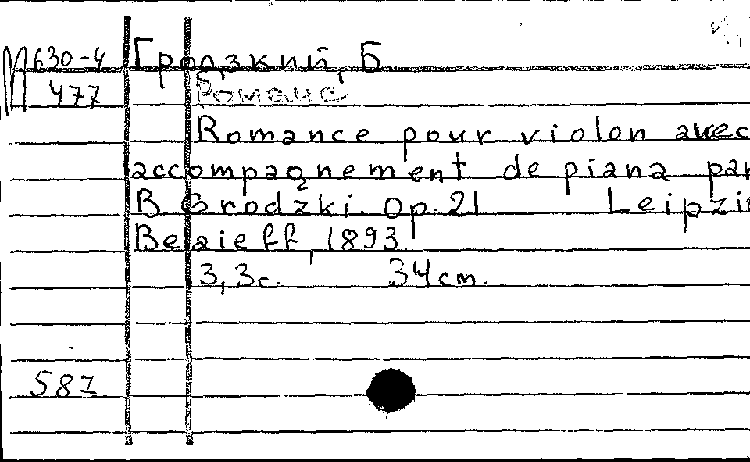 М 630-4 Гродзкий, Б
477 Романс
Romance pour violon avec
accompagnement de piana par
B Grodzki. Op. 21 Leipzi
Belaieff, 1893
3, 3с. 34 cm.
581